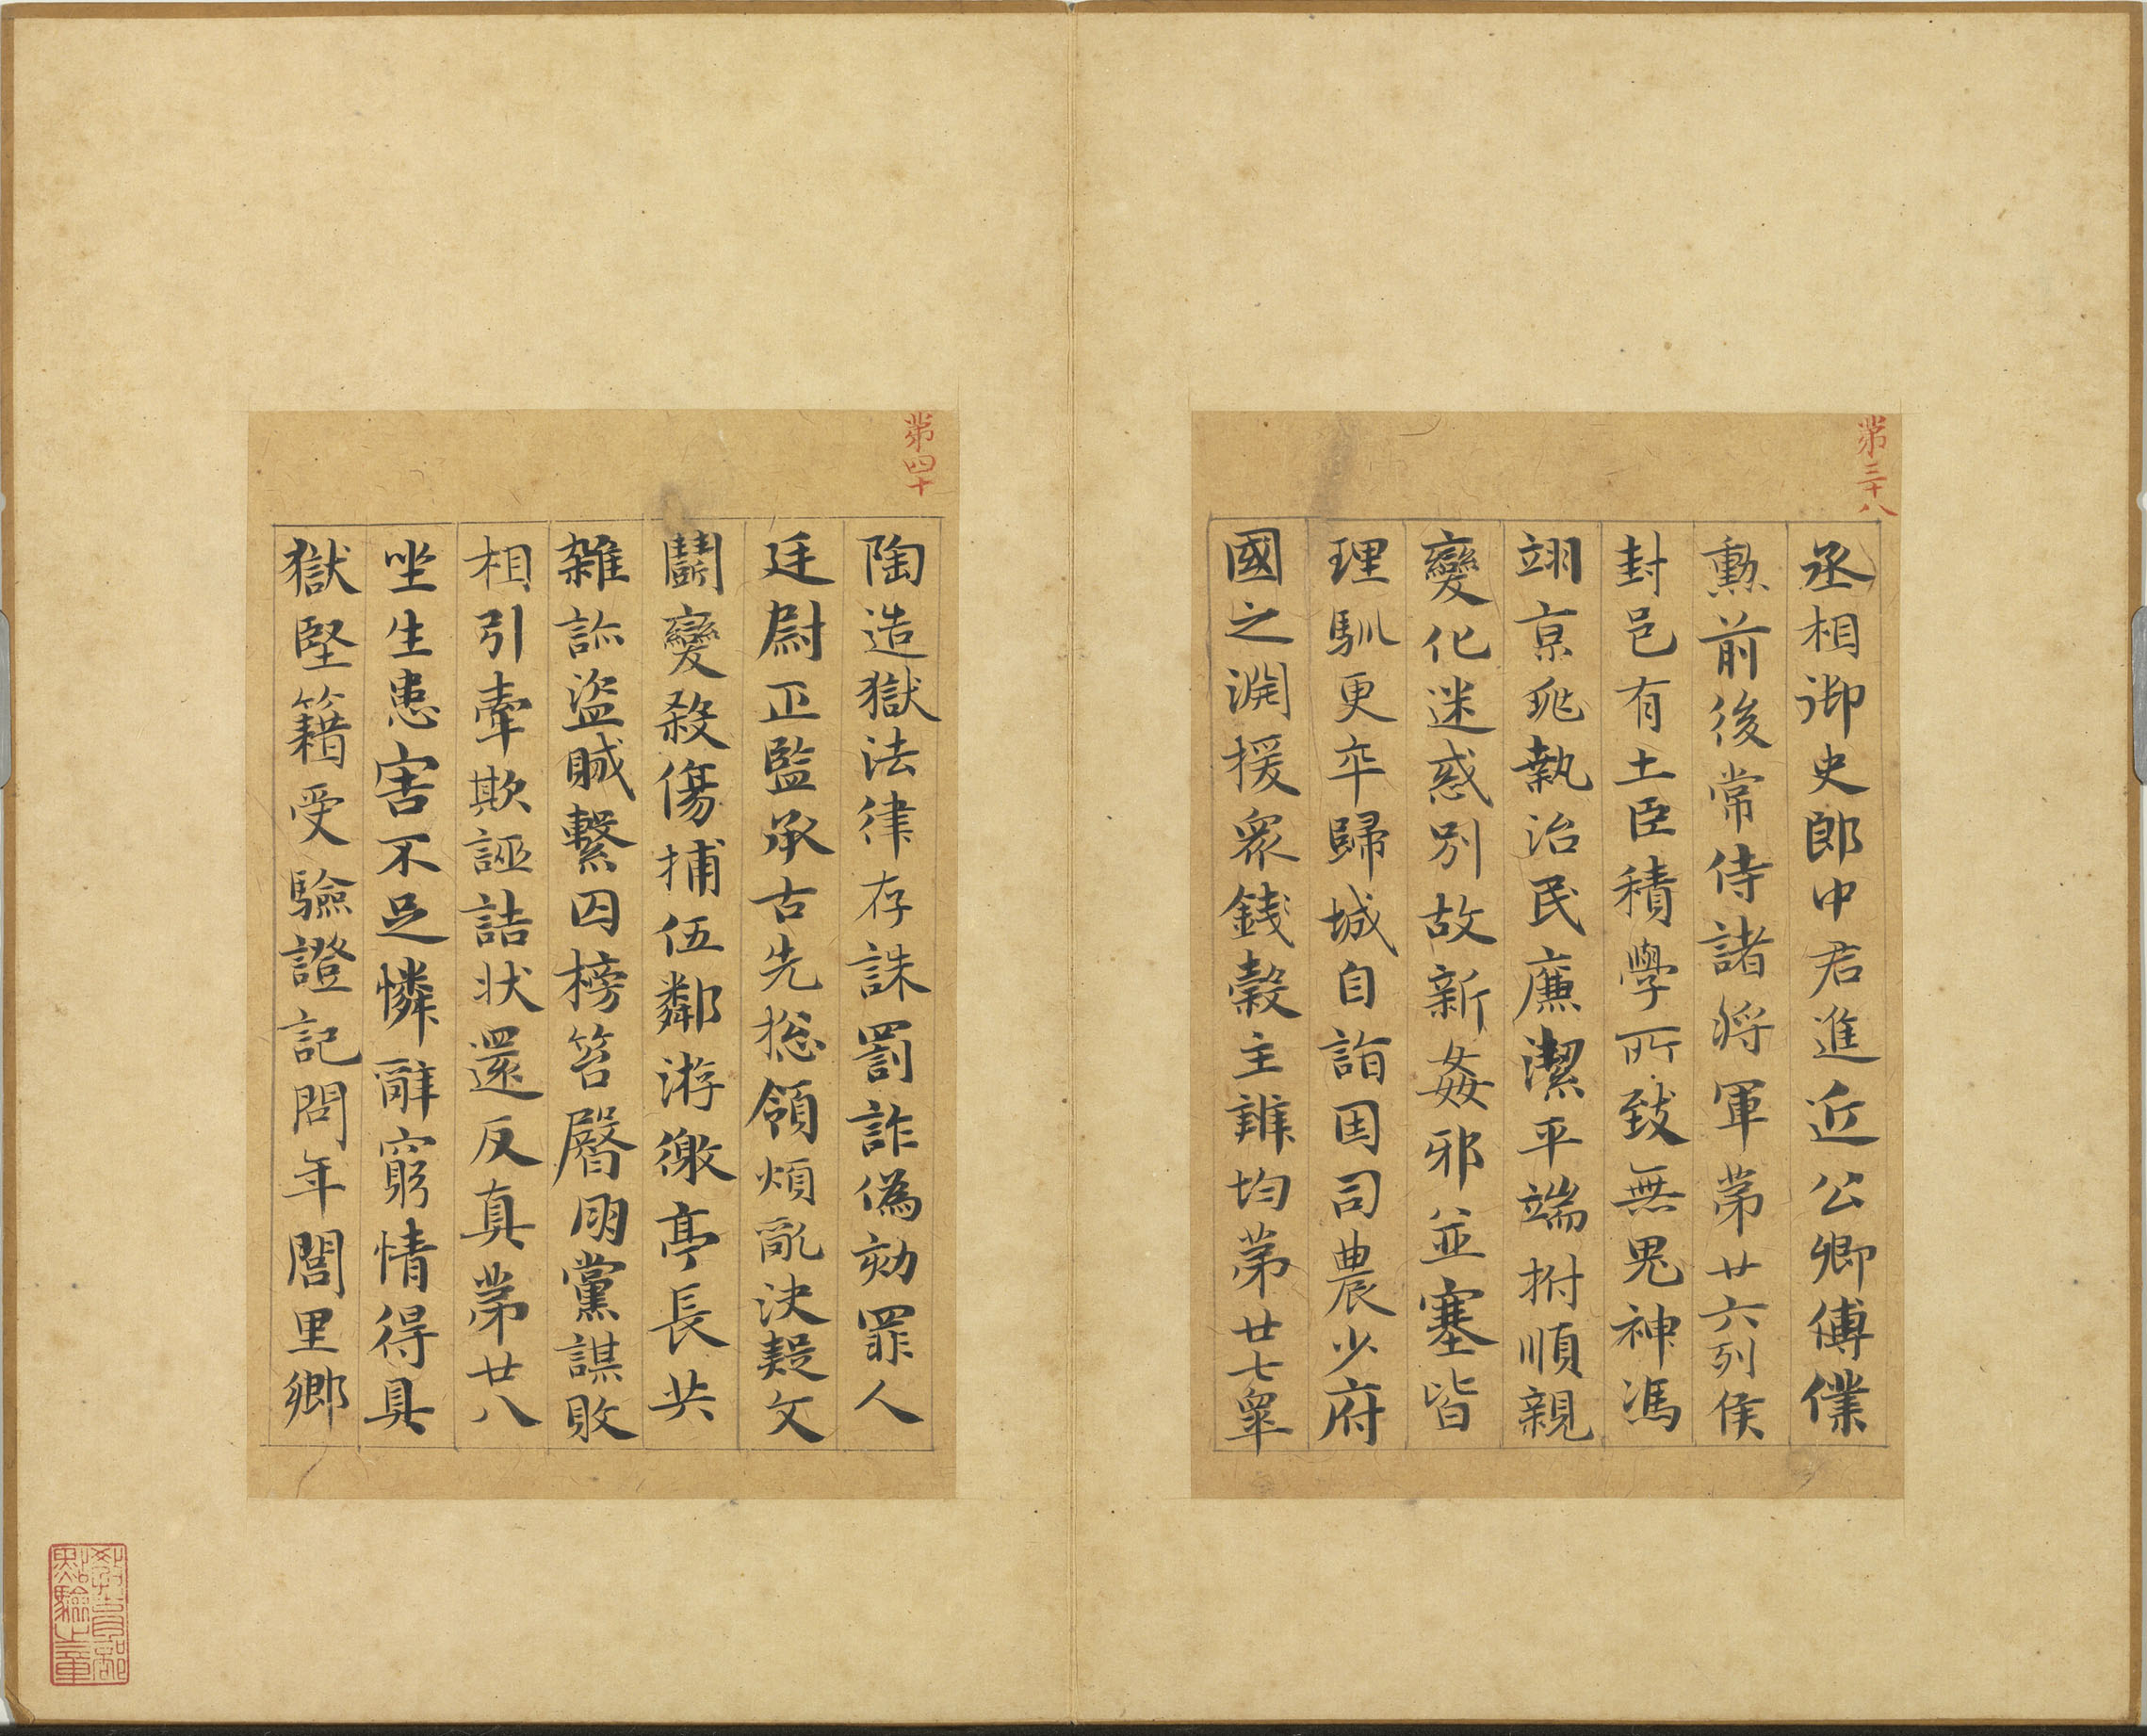 第三十八
丞相御史郎中君進近公卿傅僕
勲前後常侍諸將軍苐廿六列侯
封邑有土臣積學所致無鬼神馮
翊京兆執治民廉潔平端拊順親
變化迷惑別故新姦邪並塞皆
理馴更卒歸城自詣因司農少府
國之淵援衆錢穀主誰均苐廿七皐
第四十
陶造獄法律存誅罰詐偽劾罪人
廷尉正監承古先揔領煩亂決疑文
鬬變殺傷捕伍鄰游徼亭長共
雜訴盜賊繫囚榜笞臀朋黨謀敗
相引牽欺誣詰狀還反真苐廿八
坐生患害不足憐辭窮情得具
獄堅籍受驗證記問年閭里鄉
教育部
點驗之章